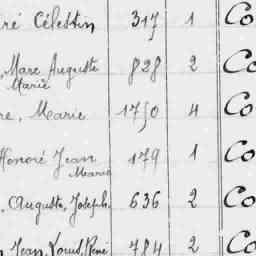 ré Célestin 317 1 Co
, Marc Auguste 828 2 Co
Marie
re, Marie 1750 4 Co
Honoré Jean 179 1 Co
Marie
, Auguste, Joseph 636 2 Co
Jean Louis René 784 2 Co